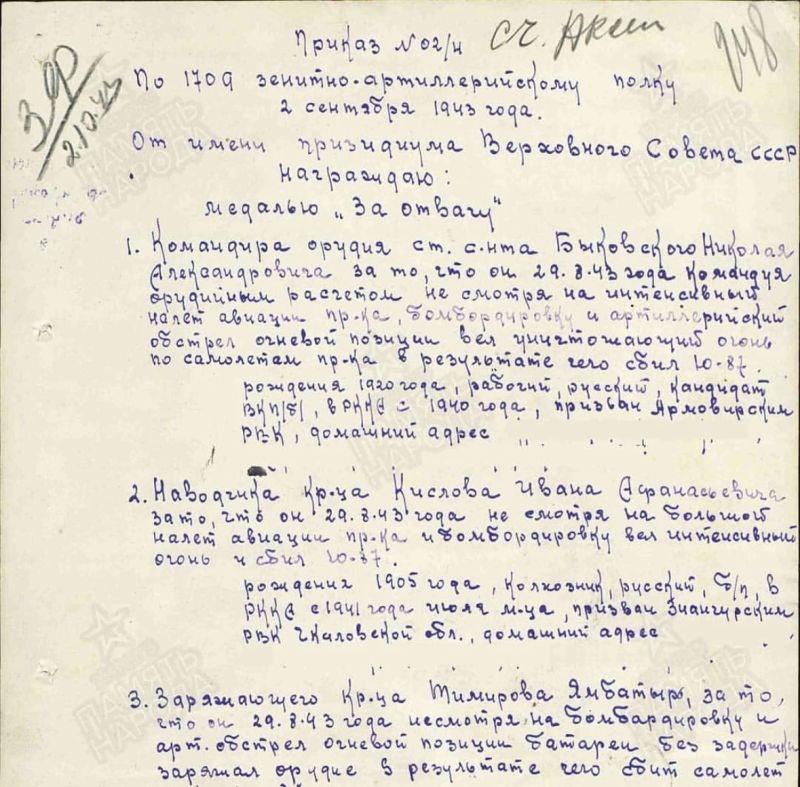 Приказ № 02/н
248
По 1709 зенитно-артиллерийскому полку
2 сентября 1943 года.
2.10.43
От имени призидиума Верховного Совета СССР
награждаю:
медалью „За отвагу"
1. Командира орудия ст. с-нта Быковского Николая
Александровича за то, что он 29.8.43 года командуя
орудийным расчетом не смотря на интенсивный
налет авиации пр-ка, бомбордировку и артиллерийский
обстрел огневой позиции вел уничтожающий огонь
по самолетам пр-ка в результате чего сбил Ю-87.
рождения 1920 года, рабочий, русский, кандидат
ВКП/б/, в РККА с 1940 года, призван Армовирским
РВК, домашний адрес
2. Наводчика кр-ца Кислова Ивана Афанасьевича
за то, что он 29.8.43 года не смотря на большой
налет авиации пр-ка и бомбордировку вел интенсивный
огонь и сбил Ю-87.
рождения 1905 года, колхозник, русский, б/п, в
РККА с 1941 года июля м-ца, призван Зиангурским
РВК Чкаловской обл., домашний адрес
3. Заряжающего кр-ца Тимирова Ямбатыр, за то,
что он 29.8.43 года несмотря на бомбардировку и
арт. обстрел огневой позиции батареи без задержки
заряжал орудие в результате чего сбит самолет
ПАМЯТЬ НАРОДА